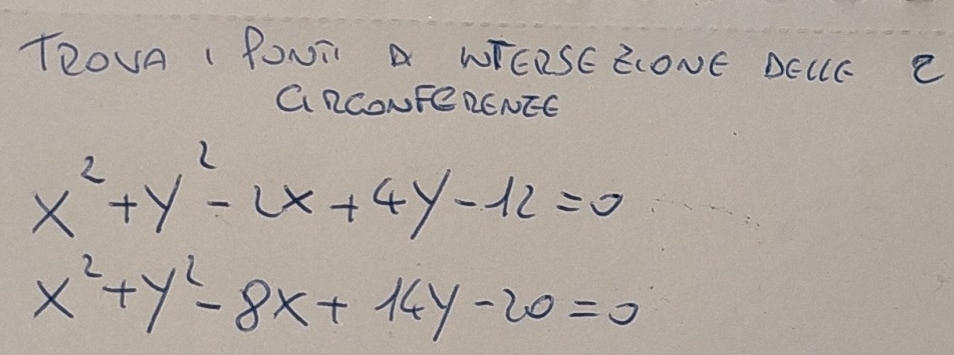 TROVA I PUNTI DI INTERSEZIONE DELLE 2
CIRCONFERENZE
x²+y²-2x+4y-12=0
x²+y²-8x+14y-20=0